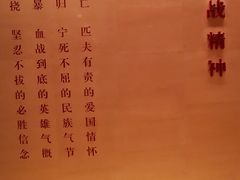 战精神
亡 匹夫有责的爱国情怀
归 宁死不屈的民族气节
暴 血战到底的英雄气概
挠 坚忍不拔的必胜信念